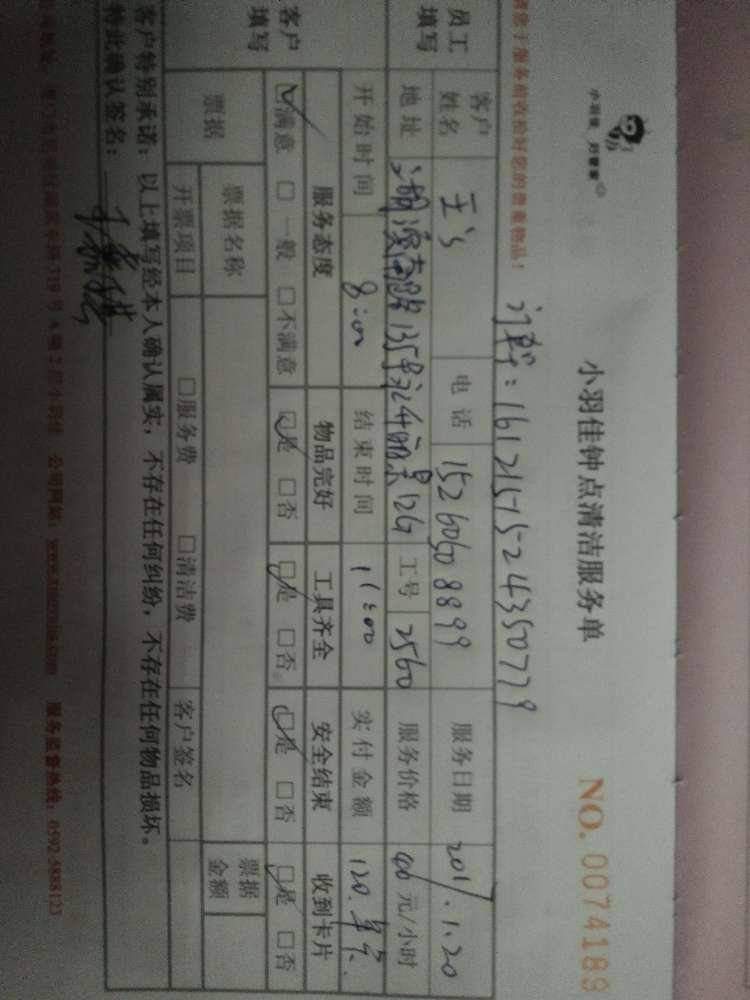 小羽佳 好管家
小羽佳钟点清洁服务单
NO. 0074189
服务前收捡好您的贵重物品!
订单:1612151524350779
员工填写
客户姓名 王 电话 15260508899 服务日期 2017.1.20
地址 湖滨南路135号 丽景12G 工号 2560 服务价格 40 元/小时
开始时间 8:00 结束时间 11:00 实付金额 120.
客户填写
服务态度 物品完好 工具齐全 安全结束 收到卡片
☑满意 □一般 □不满意 ☑是 □否 ☑是 □否 ☑是 □否 ☑是 □否
票据 票据名称 票据金额
开票项目 □服务费 □清洁费 客户签名
客户特别承诺:以上填写经本人确认属实,不存在任何纠纷,不存在任何物品损坏。
特此确认签名:
319号A幢2层小羽佳 公司网站: 服务监督热线:0592-5888123